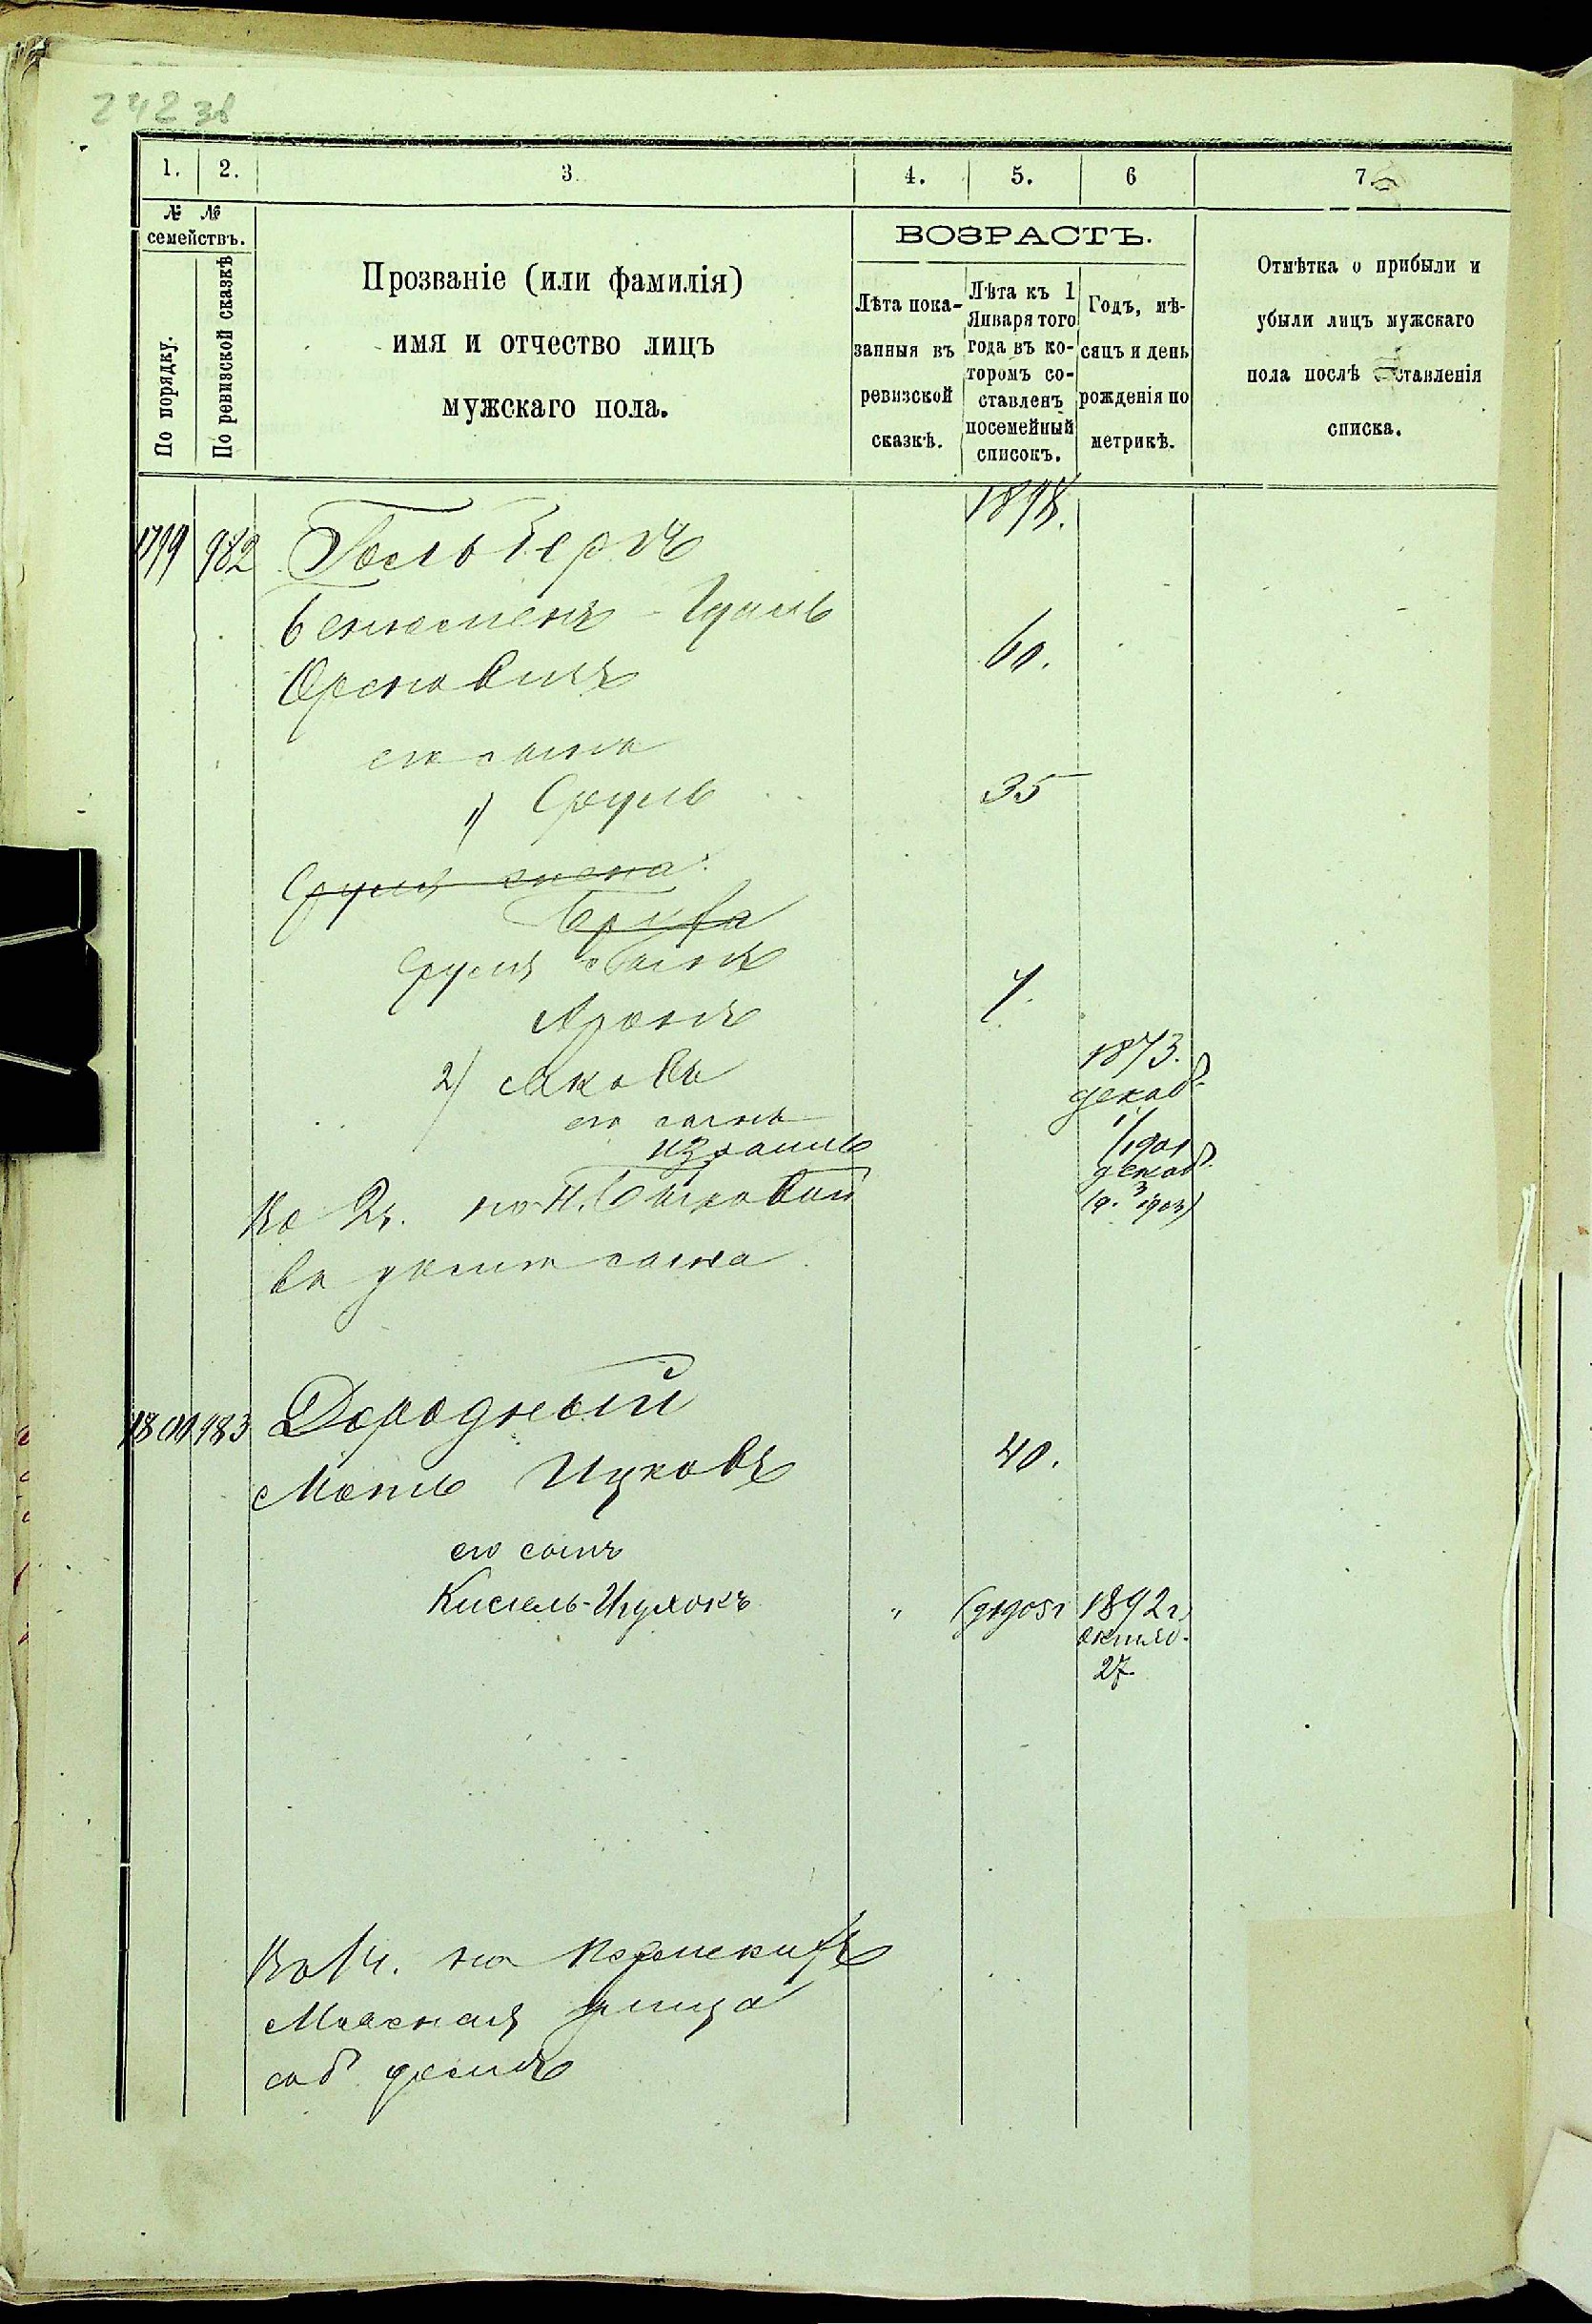 242 зв
1. 2. 3. 4. 5. 6 7.
№ №
семействъ.
По порядку.
По ревизской сказкѣ
Прозваніе (или фамилія)
имя и отчество лицъ
мужскаго пола.
ВОЗРАСТЪ.
Лѣта пока-
занныя въ
ревизской
сказкѣ.
Лѣта къ 1
Января того
года въ ко-
торомъ со-
ставленъ
посемейный
списокъ.
Годъ, мѣ-
сяцъ и день
рожденія по
метрикѣ.
Отмѣтка о прибыли и
убыли лицъ мужскаго
пола послѣ составленія
списка.
1799 982 Гольберъ 1898.
Беньоменъ-Идель
60.
его сына
1) Сруль 35
Сруля жена
Сруля сынъ
Аронъ
2) Яковъ 1873.
декаб.
его сынъ
Израиль 1/1901
декаб.
3
Во 2ч. по Н. Быковой
въ домѣ сына
1800 983 Дородный
Мотль Ицковъ 40.
его сынъ
Кисель-Ицхокъ " 1892 г.
октяб.
27
Во 1ч. на
Мясная улица
соб. домъ